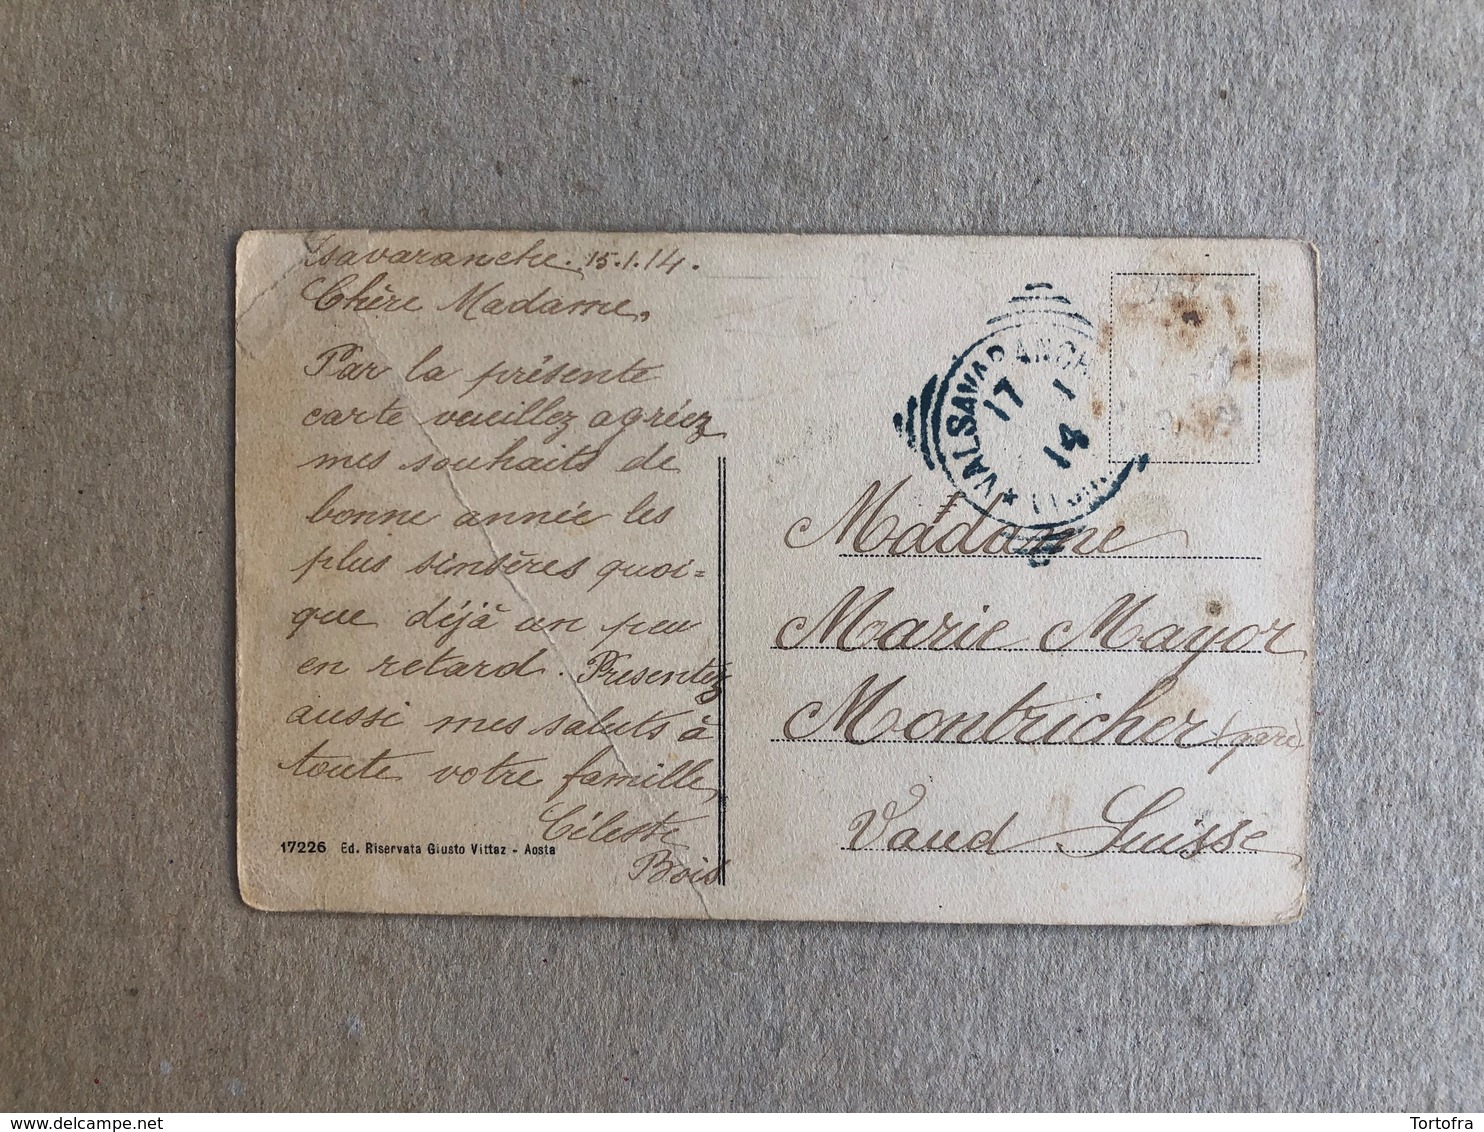 Lsavaranche. 15.1.14.
Chère Madame,
Par la présente
carte veuillez agréez
mes souhaits de
bonne année les
plus sinsères quoi=
que déjà un peu
en retard. Presentez
aussi mes saluts à
toute votre famille,
Céleste
Bois
17226 Ed. Riservata Giusto Vittaz - Aosta
VALSAVARANCH
17 1
14
Madame
Marie Mayor
Montricher (gare)
Vaud Suisse
Tortofra